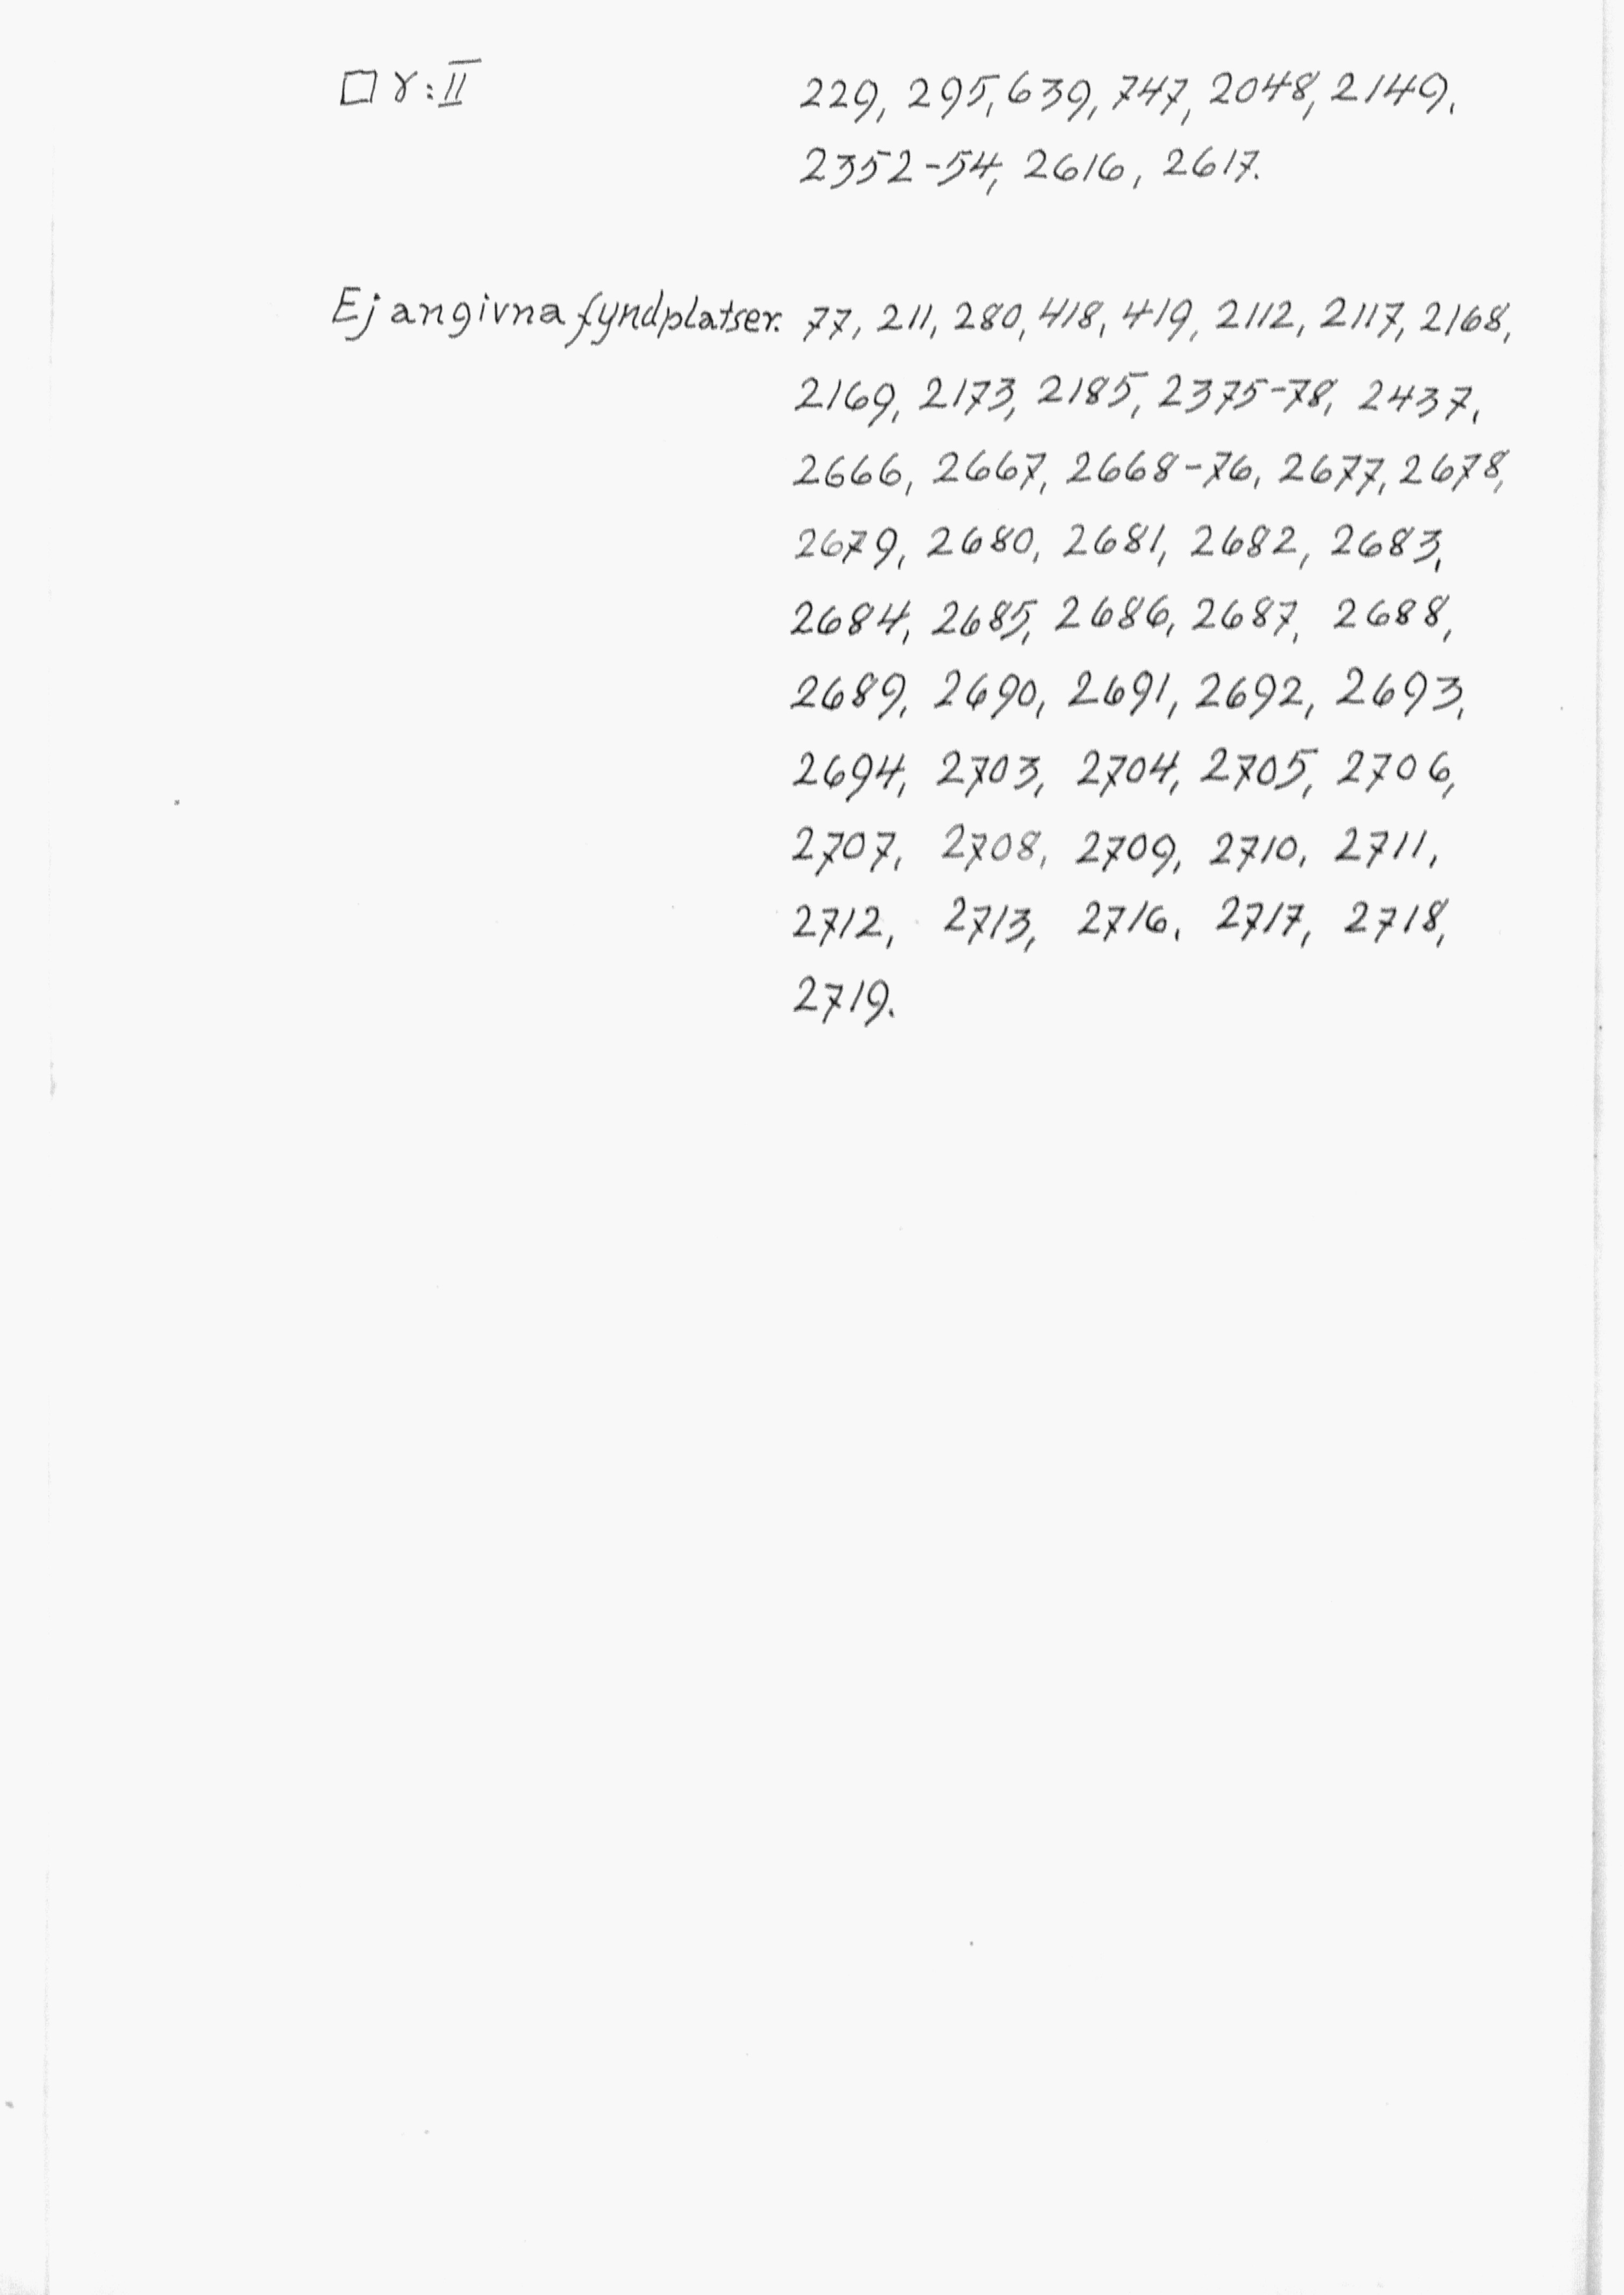 □ γ:II 229, 295, 639, 747, 2048, 2149,
2352-54, 2616, 2617.
Ej angivna fyndplatser. 77, 211, 280, 418, 419, 2112, 2117, 2168,
2169, 2173, 2185, 2375-78, 2437,
2666, 2667, 2668-76, 2677, 2678,
2679, 2680, 2681, 2682, 2683,
2684, 2685, 2686, 2687, 2688,
2689, 2690, 2691, 2692, 2693,
2694, 2703, 2704, 2705, 2706,
2707, 2708, 2709, 2710, 2711,
2712, 2713, 2716, 2717, 2718,
2719.